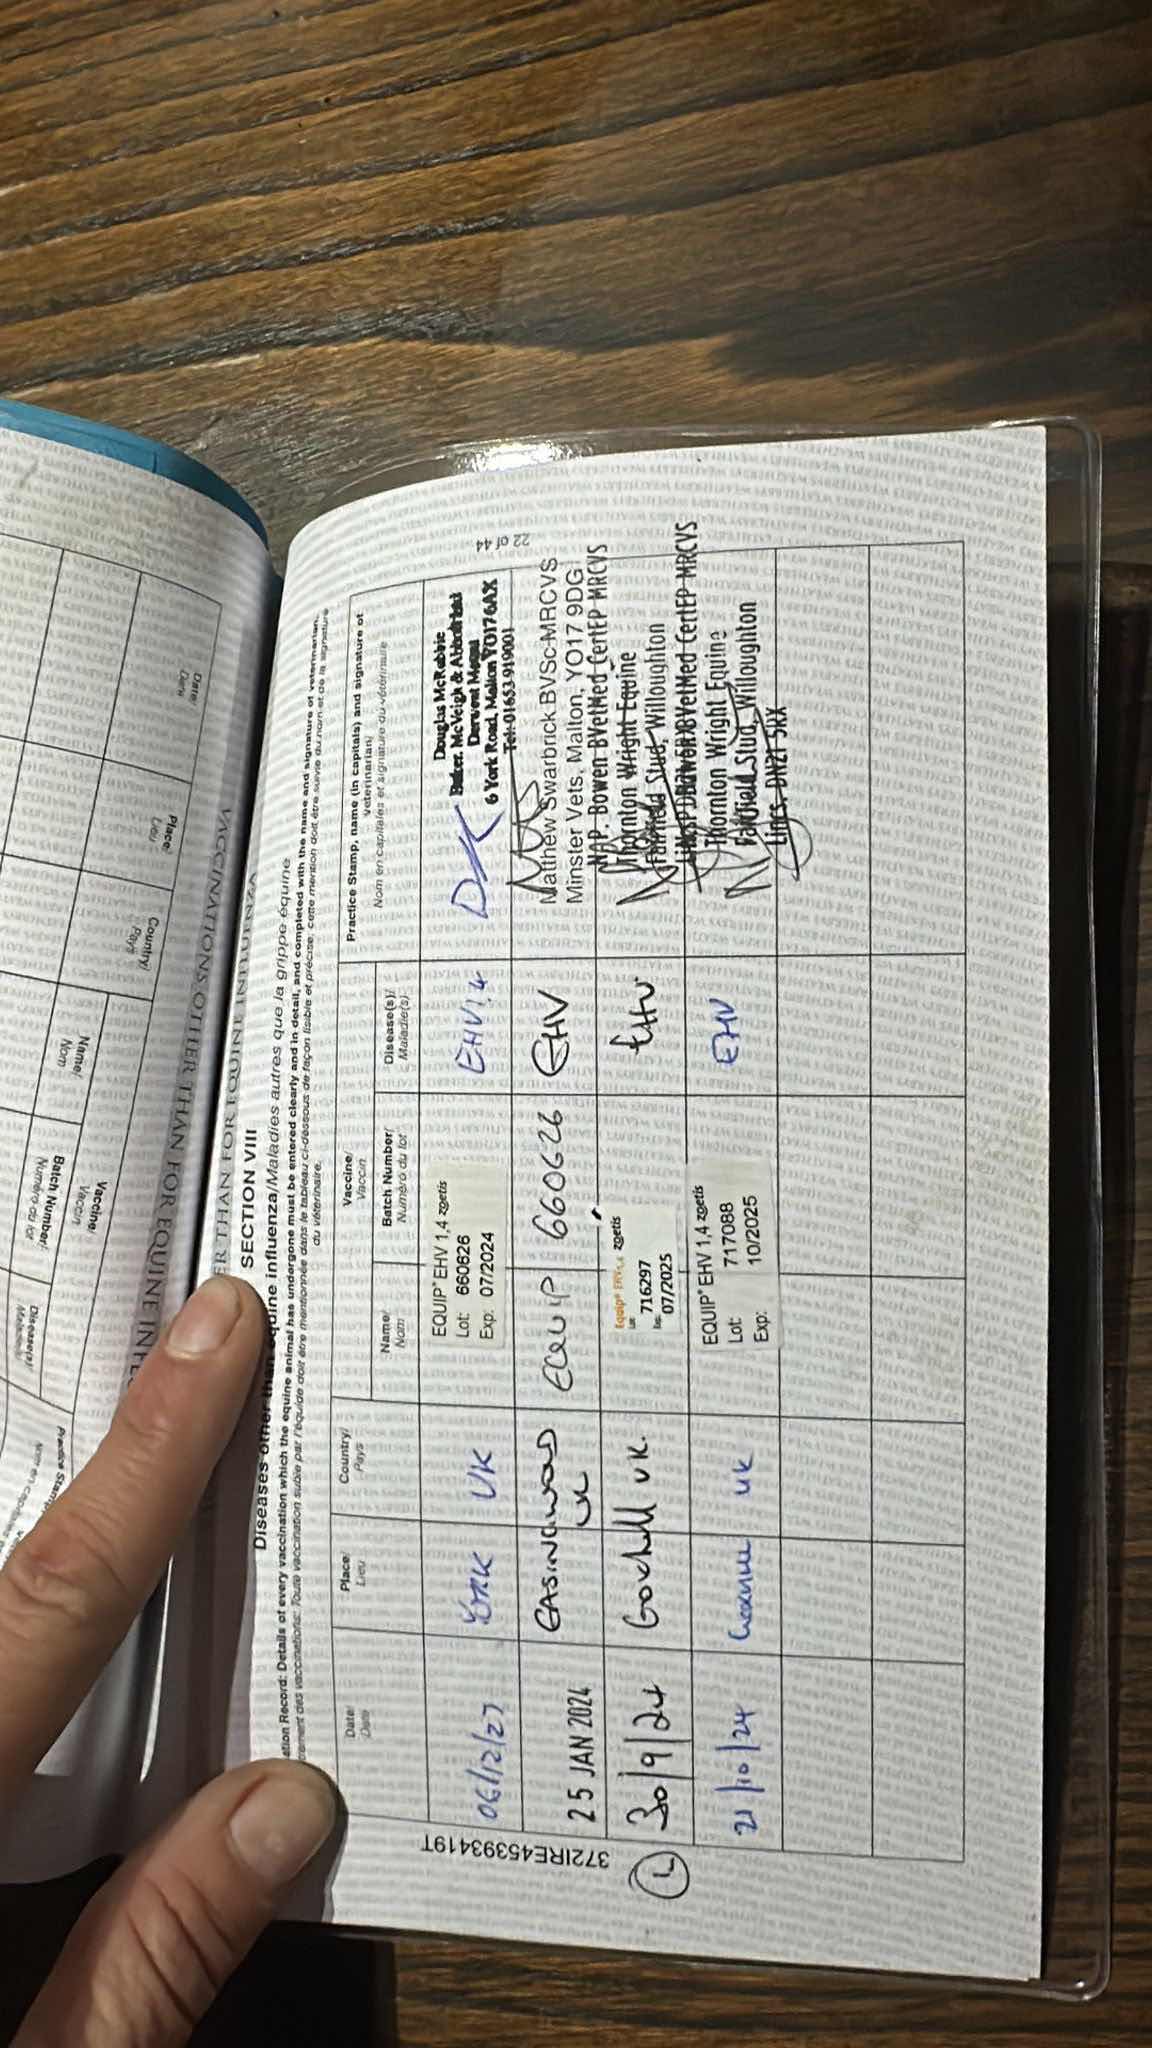 22 of 44
SECTION VIII
Diseases other than equine influenza/Maladies autres que la grippe équine
ation Record: Details of every vaccination which the equine animal has undergone must be entered clearly and in detail, and completed with the name and signature of veterinarian.
trement des vaccinations: Toute vaccination subie par l'équidé doit être mentionnée dans le tableau ci-dessous de façon lisible et précise; cette mention doit être suivie du nom et de la signature
du vétérinaire.
Date/
Date
Place/
Lieu
Country/
Pays
Vaccine/
Vaccin
Name/
Nom
Batch Number/
Numéro du lot
Disease(s)/
Maladie(s)
Practice Stamp, name (in capitals) and signature of
veterinarian/
Nom en capitales et signature du vétérinaire
06/12/23 YORK UK
EQUIP® EHV 1,4 zoetis
Lot: 660626
Exp: 07/2024
EHV1.4
Douglas McRobbie
Baker. McVeigh &
6 York Road, Malton YO17 6AX
Tel: 01653 919001
25 JAN 2024 EASINGWOLD UK EQUIP 660626 EHV
Matthew Swarbrick BVSc MRCVS
Minster Vets, Malton, YO17 9DG
30/9/24 UK.
Equip® EHV1,4 zoetis
716297
07/2025
EHV
M.A.P. Bowen BVetMed CertEP MRCVS
Thornton Wright Equine
Fairfield Stud, Willoughton
21/10/24 UK
EQUIP® EHV 1,4 zoetis
Lot: 717088
Exp: 10/2025
EHV
BVetMed CertEP MRCVS
Thornton Wright Equine
Fairfield Stud, Willoughton
Lincs. DN21 5RX
372IRE45393419T
VACCINATIONS OTHER THAN FOR EQUINE INFL
ER THAN FOR EQUINE INFLUENZA
Date/
Date
Place/
Lieu
Country/
Pays
Vaccine/
Vaccin
Name/
Nom
Batch Number/
Numéro du lot
Disease(s)/